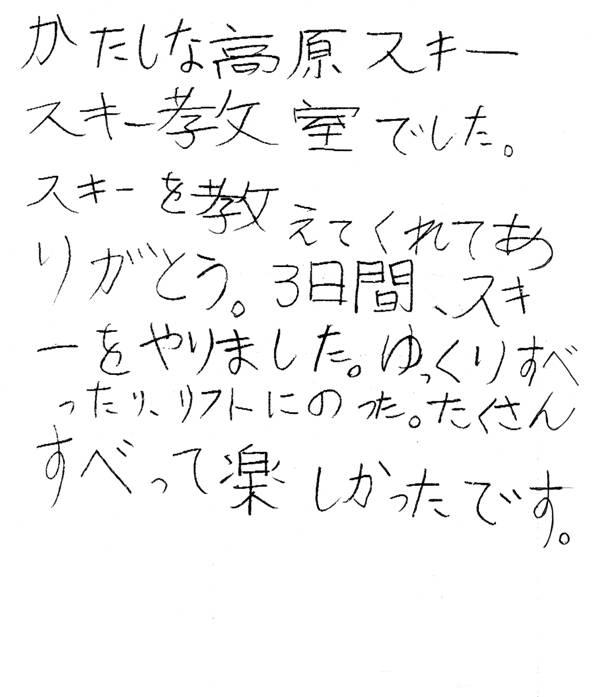 かたしな高原スキー
スキー教室でした。
スキーを教えてくれてあ
りがとう。3日間、スキ
ーをやりました。ゆっくりすべ
ったり、リフトにのった。たくさん
すべって楽しかったです。